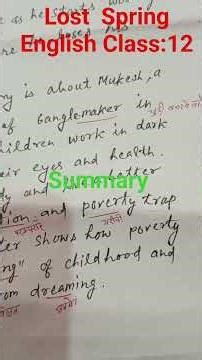 Lost Spring
English Class:12
as he starts
ry is about Mukesh, a
of Banglemaker in
children work in dark
eir eyes and health.
Summary
better
ion and poverty trap
गरीबी
ter shows how poverty
ng" of childhood and
om dreaming.